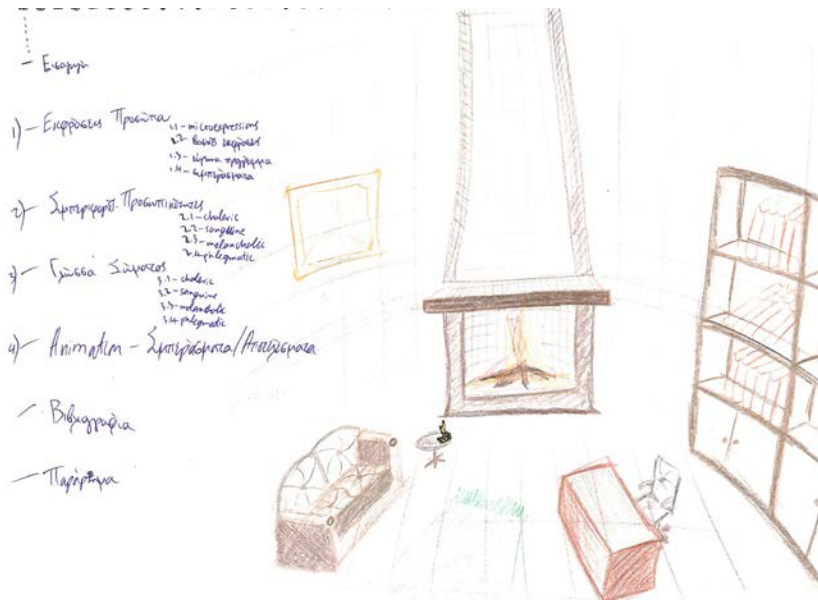 — Εισαγωγή
1) — Εκφράσεις Προσώπου
1.1 - microexpressions
1.2 - βασικές εκφράσεις
1.3 - πρόγραμμα
1.4 - συμπεράσματα
2) — Συμπεριφορά - Προσωπικότητες
2.1 - choleric
2.2 - sanguine
2.3 - melancholic
2.4 - phlegmatic
3) — Γλώσσα Σώματος
3.1 - choleric
3.2 - sanguine
3.3 - melancholic
3.4 - phlegmatic
4) — Animation — Συμπεράσματα/Αποτελέσματα
— Βιβλιογραφία
— Παράρτημα